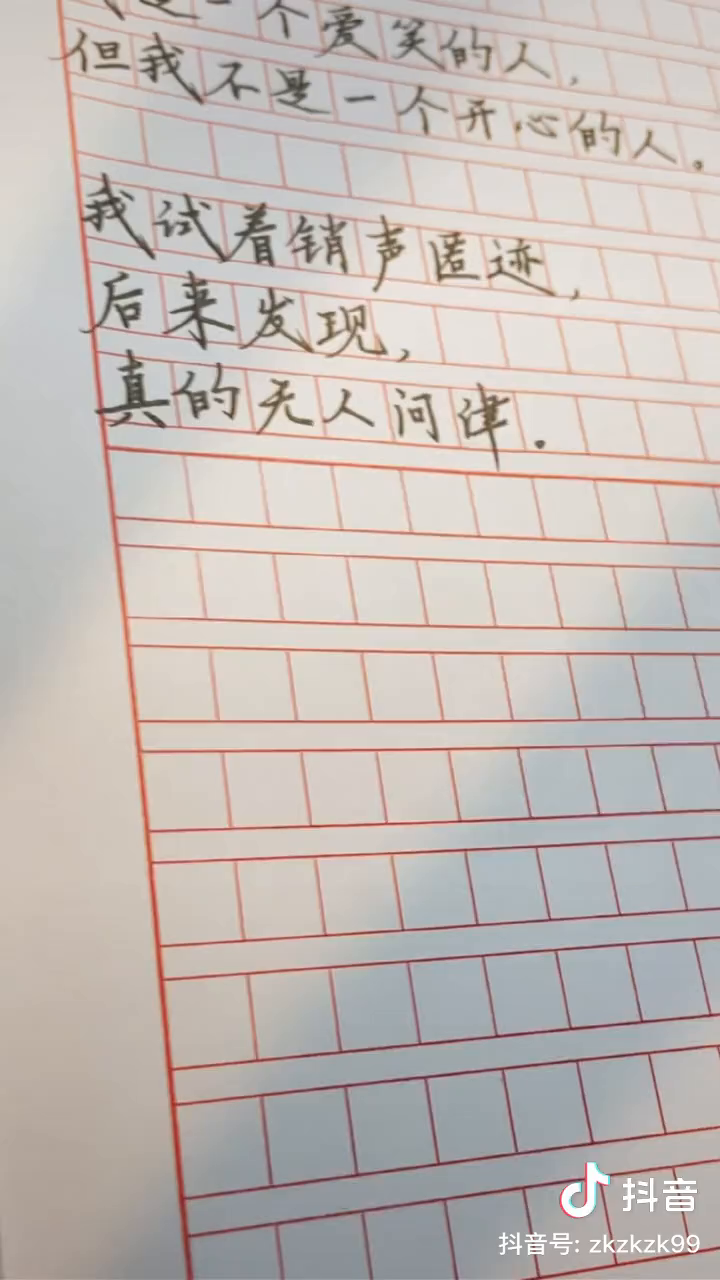 是一个爱笑的人，
但我不是一个开心的人。
我试着销声匿迹，
后来发现，
真的无人问津。
抖音
抖音号: zkzkzk99